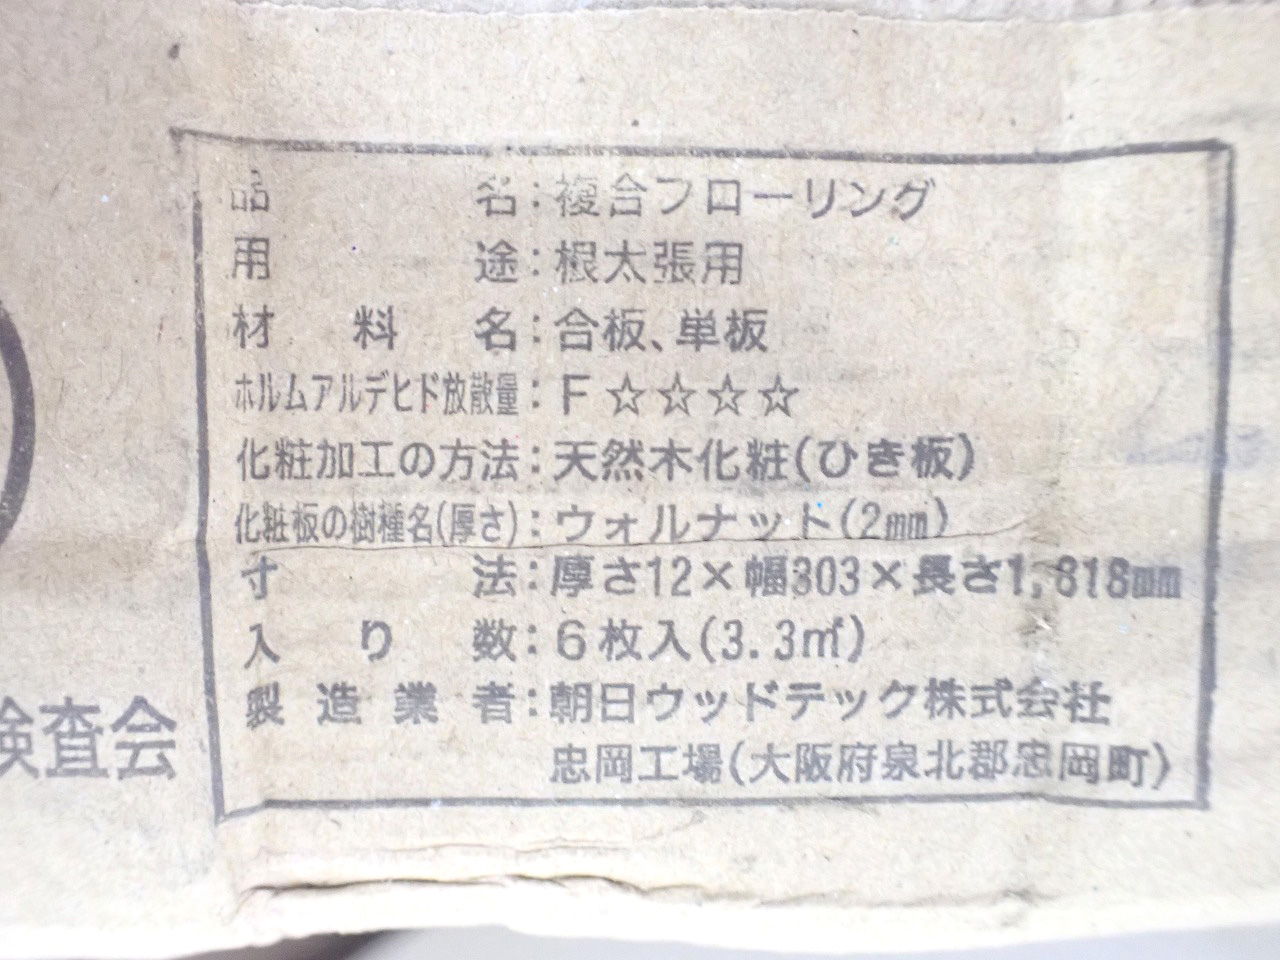 品名：複合フローリング
用途：根太張用
材料名：合板、単板
ホルムアルデヒド放散量：F☆☆☆☆
化粧加工の方法：天然木化粧(ひき板)
化粧板の樹種名(厚さ)：ウォルナット(2mm)
寸法：厚さ12×幅303×長さ1,818mm
入り数：6枚入(3.3㎡)
製造業者：朝日ウッドテック株式会社
忠岡工場(大阪府泉北郡忠岡町)
検査会